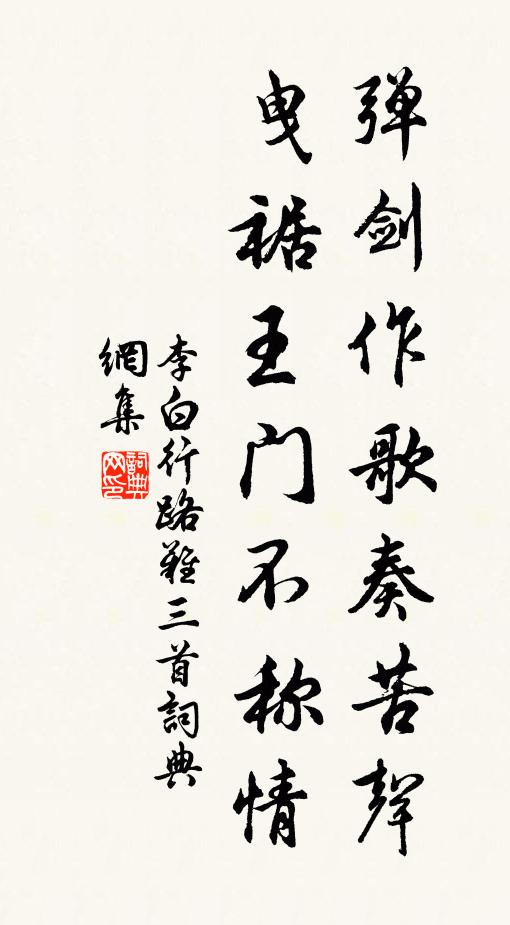 弹剑作歌奏苦聲
曳裾王门不称情
李白行路难三首詞典
網集
詞典網印